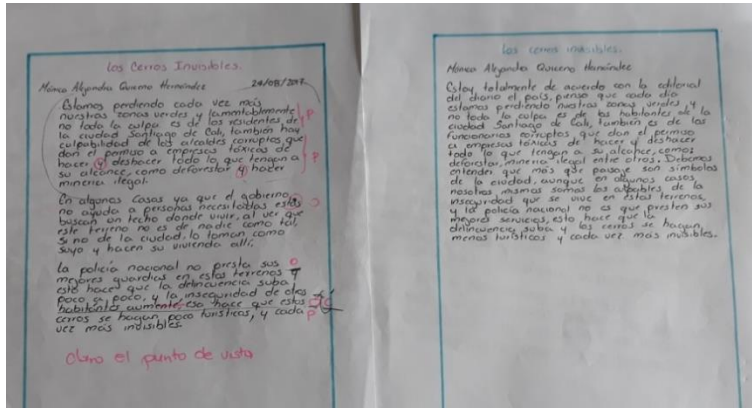 Los Cerros Invisibles.
Mónica Alejandra Quiceno Hernández 24/08/2017
Estamos perdiendo cada vez más
nuestras zonas verdes y lamentablemente
no toda la culpa es de los residentes de
la ciudad Santiago de Cali, también hay
culpabilidad de los alcaldes corruptos que
dan el permiso a empresas tóxicas de
hacer y deshacer todo lo que tengan a
su alcance, como deforestar y hacer
mineria ilegal.
p
p
En algunos casos ya que el gobierno
no ayuda a personas necesitadas estas
buscan un techo donde vivir, al ver que
este terreno no es de nadie como tal,
si no de la ciudad, lo toman como
suyo y hacen su vivienda allí.
La policía nacional no presta sus
mejores guardias en estos terrenos y
esto hace que la delincuencia suba
poco a poco, y la inseguridad de
habitantes aumente, esa hace que estos
cerros se hagan poco turísticos, y cada
vez más indisibles.
p
Claro el punto de vista
los cerros invisibles.
Mónica Alejandra Quiceno Hernández
Estoy totalmente de acuerdo con la editorial
del diario el país, pienso que cada día
estamos perdiendo nuestras zonas verdes y
no toda la culpa es de los habitantes de la
ciudad Santiago de Cali, también es de los
funcionarios corruptos que dan el permiso
a empresas tóxicas de hacer y deshacer
todo lo que tengan a su alcance, como
deforestar, mineria ilegal entre otros. Debemos
entender que más que paisaje son símbolos
de la ciudad, aunque en algunos casos
nosotros mismos somos los culpables de la
inseguridad que se vive en estos terrenos,
y la policía nacional no es que presten sus
mejores servicios, esto hace que la
delincuencia suba y los cerros se hagan
menos turísticos y cada vez más invisibles.